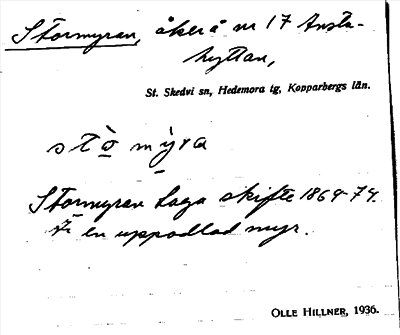 Stormyran, åker å nr 17 Ansta-
hyttan,
St. Skedvi sn, Hedemora tg, Kopparbergs län.
stò mỳra
Stormyran Laga skifte 1864-74.
Är en uppodlad myr.
OLLE HILLNER, 1936.